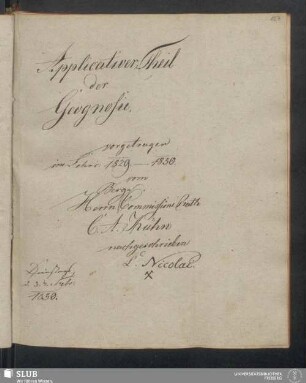 Applicativer Theil
der
Geognosie.
vorgetragen
im Jahre 1829–1830.
vom
Berg
Herrn Commissions Rath
C. A. Kühn
nachgeschrieben
Nicolai.
X
1830.
SLUB
Wir führen Wissen.
UNIVERSITÄTSBIBLIOTHEK
FREIBERG